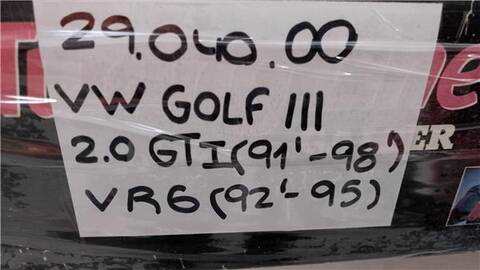 29.040.00
VW GOLF III
2.0 GTI (91'-98')
VR6 (92'-95)